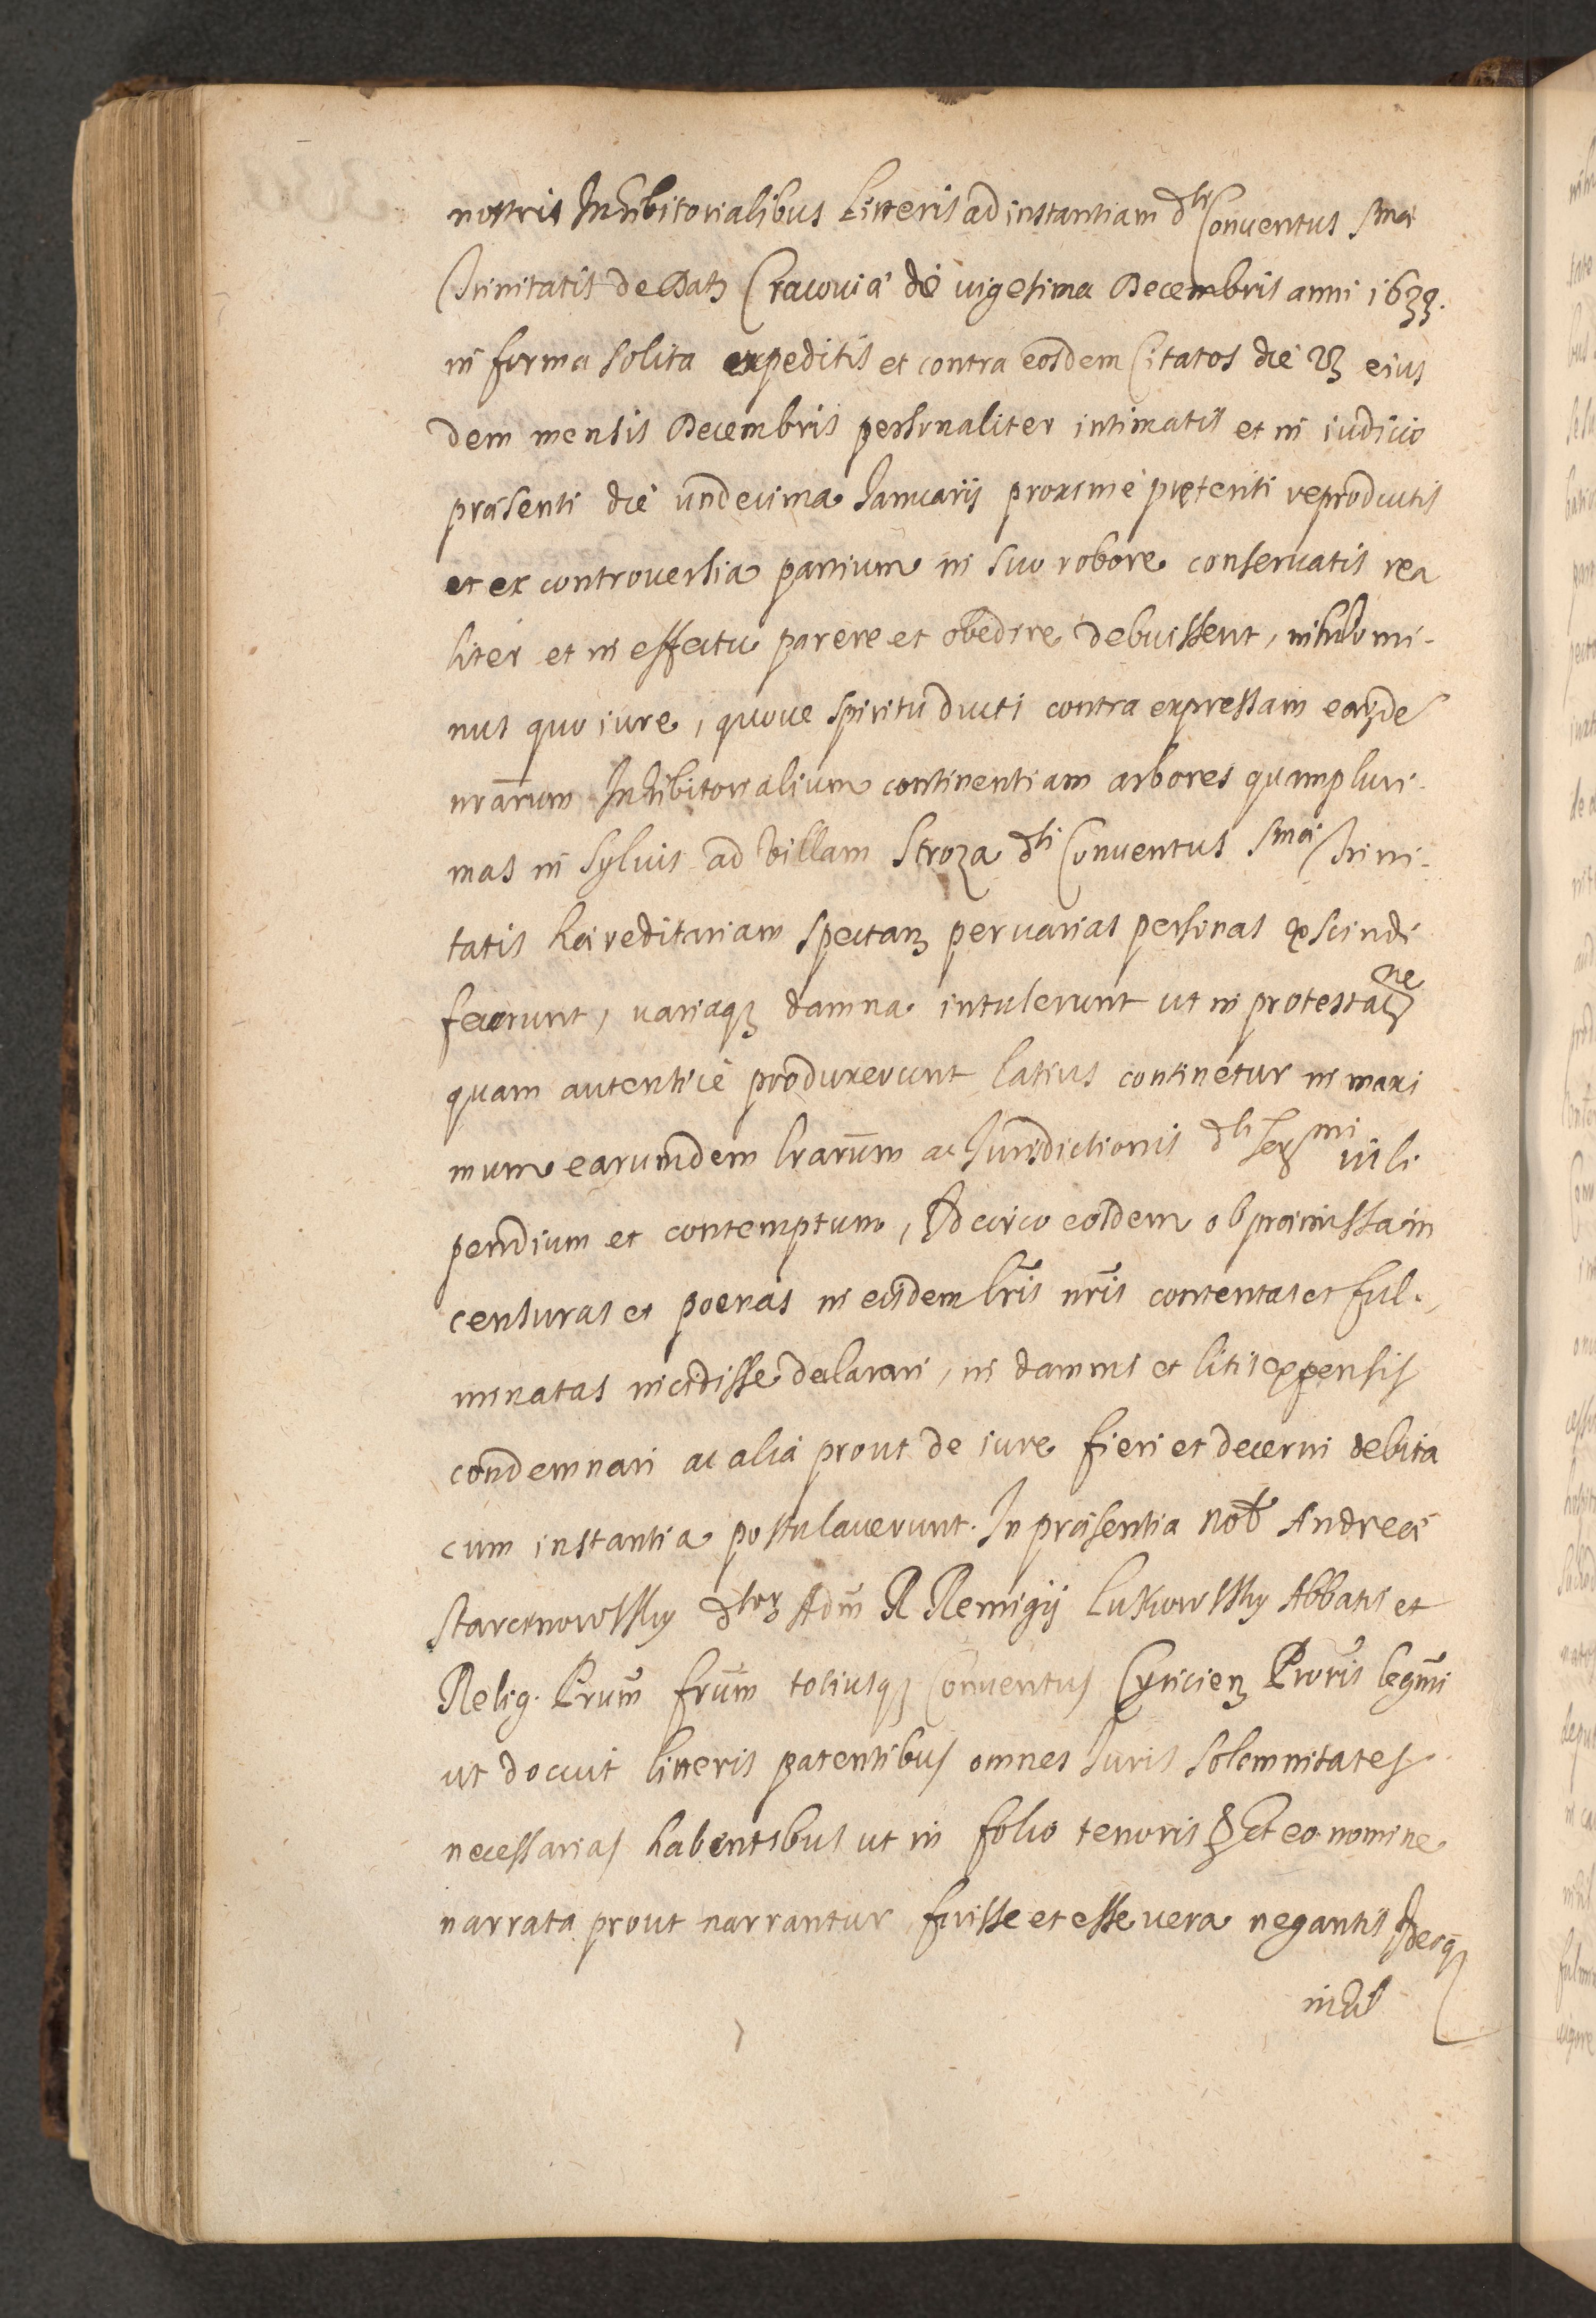 nostris Inhibitorialibus Litteris ad instantiam dti Conventus Smæ
Trinitatis de Datz Cracoviæ die vigesima Decembris anni 1633.
in forma solita expeditis et contra eosdem Citatos die 23 eius
dem mensis Decembris personaliter intimatis et in iudicio
præsenti die undecima Januarij proxime præteriti reproductis
et ex controversia partium in suo robore conservatis rea
liter et in effectu parere et obedire debuissent, nihilomi-
nus quo iure, quove spiritu ducti contra expressam earunde
nrarum Inhibitorialium continentiam arbores quampluri-
mas in sylvis ad villam Stroza dti Conventus Smæ Trini-
tatis hæreditariam spectanz per varias personas exscindi
fecerunt, variaqz damna intulerunt ut in protestaone
quam autentice produxerunt latius continetur in maxi
mum earumdem lrarum ac Jurisdictionis dti vili
pendium et contemptum, Idcirco eosdem ob præmissa in
censuras et poenas in eisdem lris nris contentas et ful-
minatas incidisse declarari, in damnis et litis expensis
condemnari ac alia prout de iure fieri et decerni debita
cum instantia postulaverunt. In præsentia Nob Andreæ
Starczinowssky dtorz Adm R Remigij Lukowssky Abbatis et
Relig. Prum frum totiusqz Conventus Cyricienz Proris legmi
ut docuit litteris patentibus omnes Juris solemnitates
necessarias habentibus ut in folio tenoris & Et eo nomine
narrata prout narrantur fuisse et esse vera negantis Ideoqz
nihil